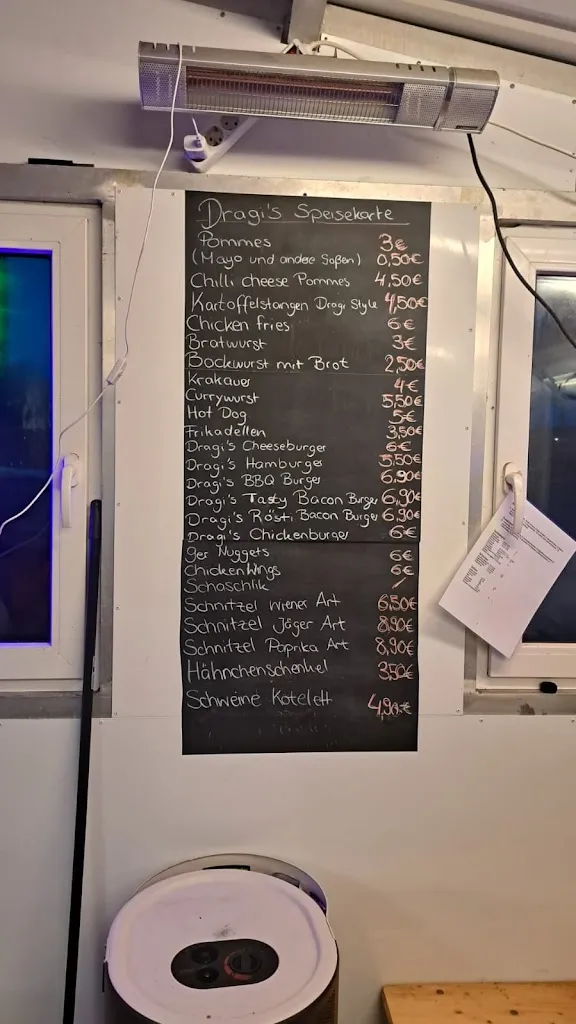 Dragi's Speisekarte
Pommes 3€
(Mayo und andere Soßen) 0,50€
Chilli cheese Pommes 4,50€
Kartoffelstangen Dragi Style 4,50€
Chicken fries 6€
Bratwurst 3€
Bockwurst mit Brot 2,50€
Krakauer 4€
Currywurst 5,50€
Hot Dog 5€
Frikadellen 3,50€
Dragi's Cheeseburger 6€
Dragi's Hamburger 5,50€
Dragi's BBQ Burger 6,90€
Dragi's Tasty Bacon Burger 6,90€
Dragi's Rösti Bacon Burger 6,90€
Dragi's Chickenburger 6€
9er Nuggets 6€
Chicken Wings 6€
Schaschlik /
Schnitzel Wiener Art 6,50€
Schnitzel Jäger Art 8,90€
Schnitzel Paprika Art 8,90€
Hähnchenschenkel 3,50€
Schweine Kotelett 4,90€